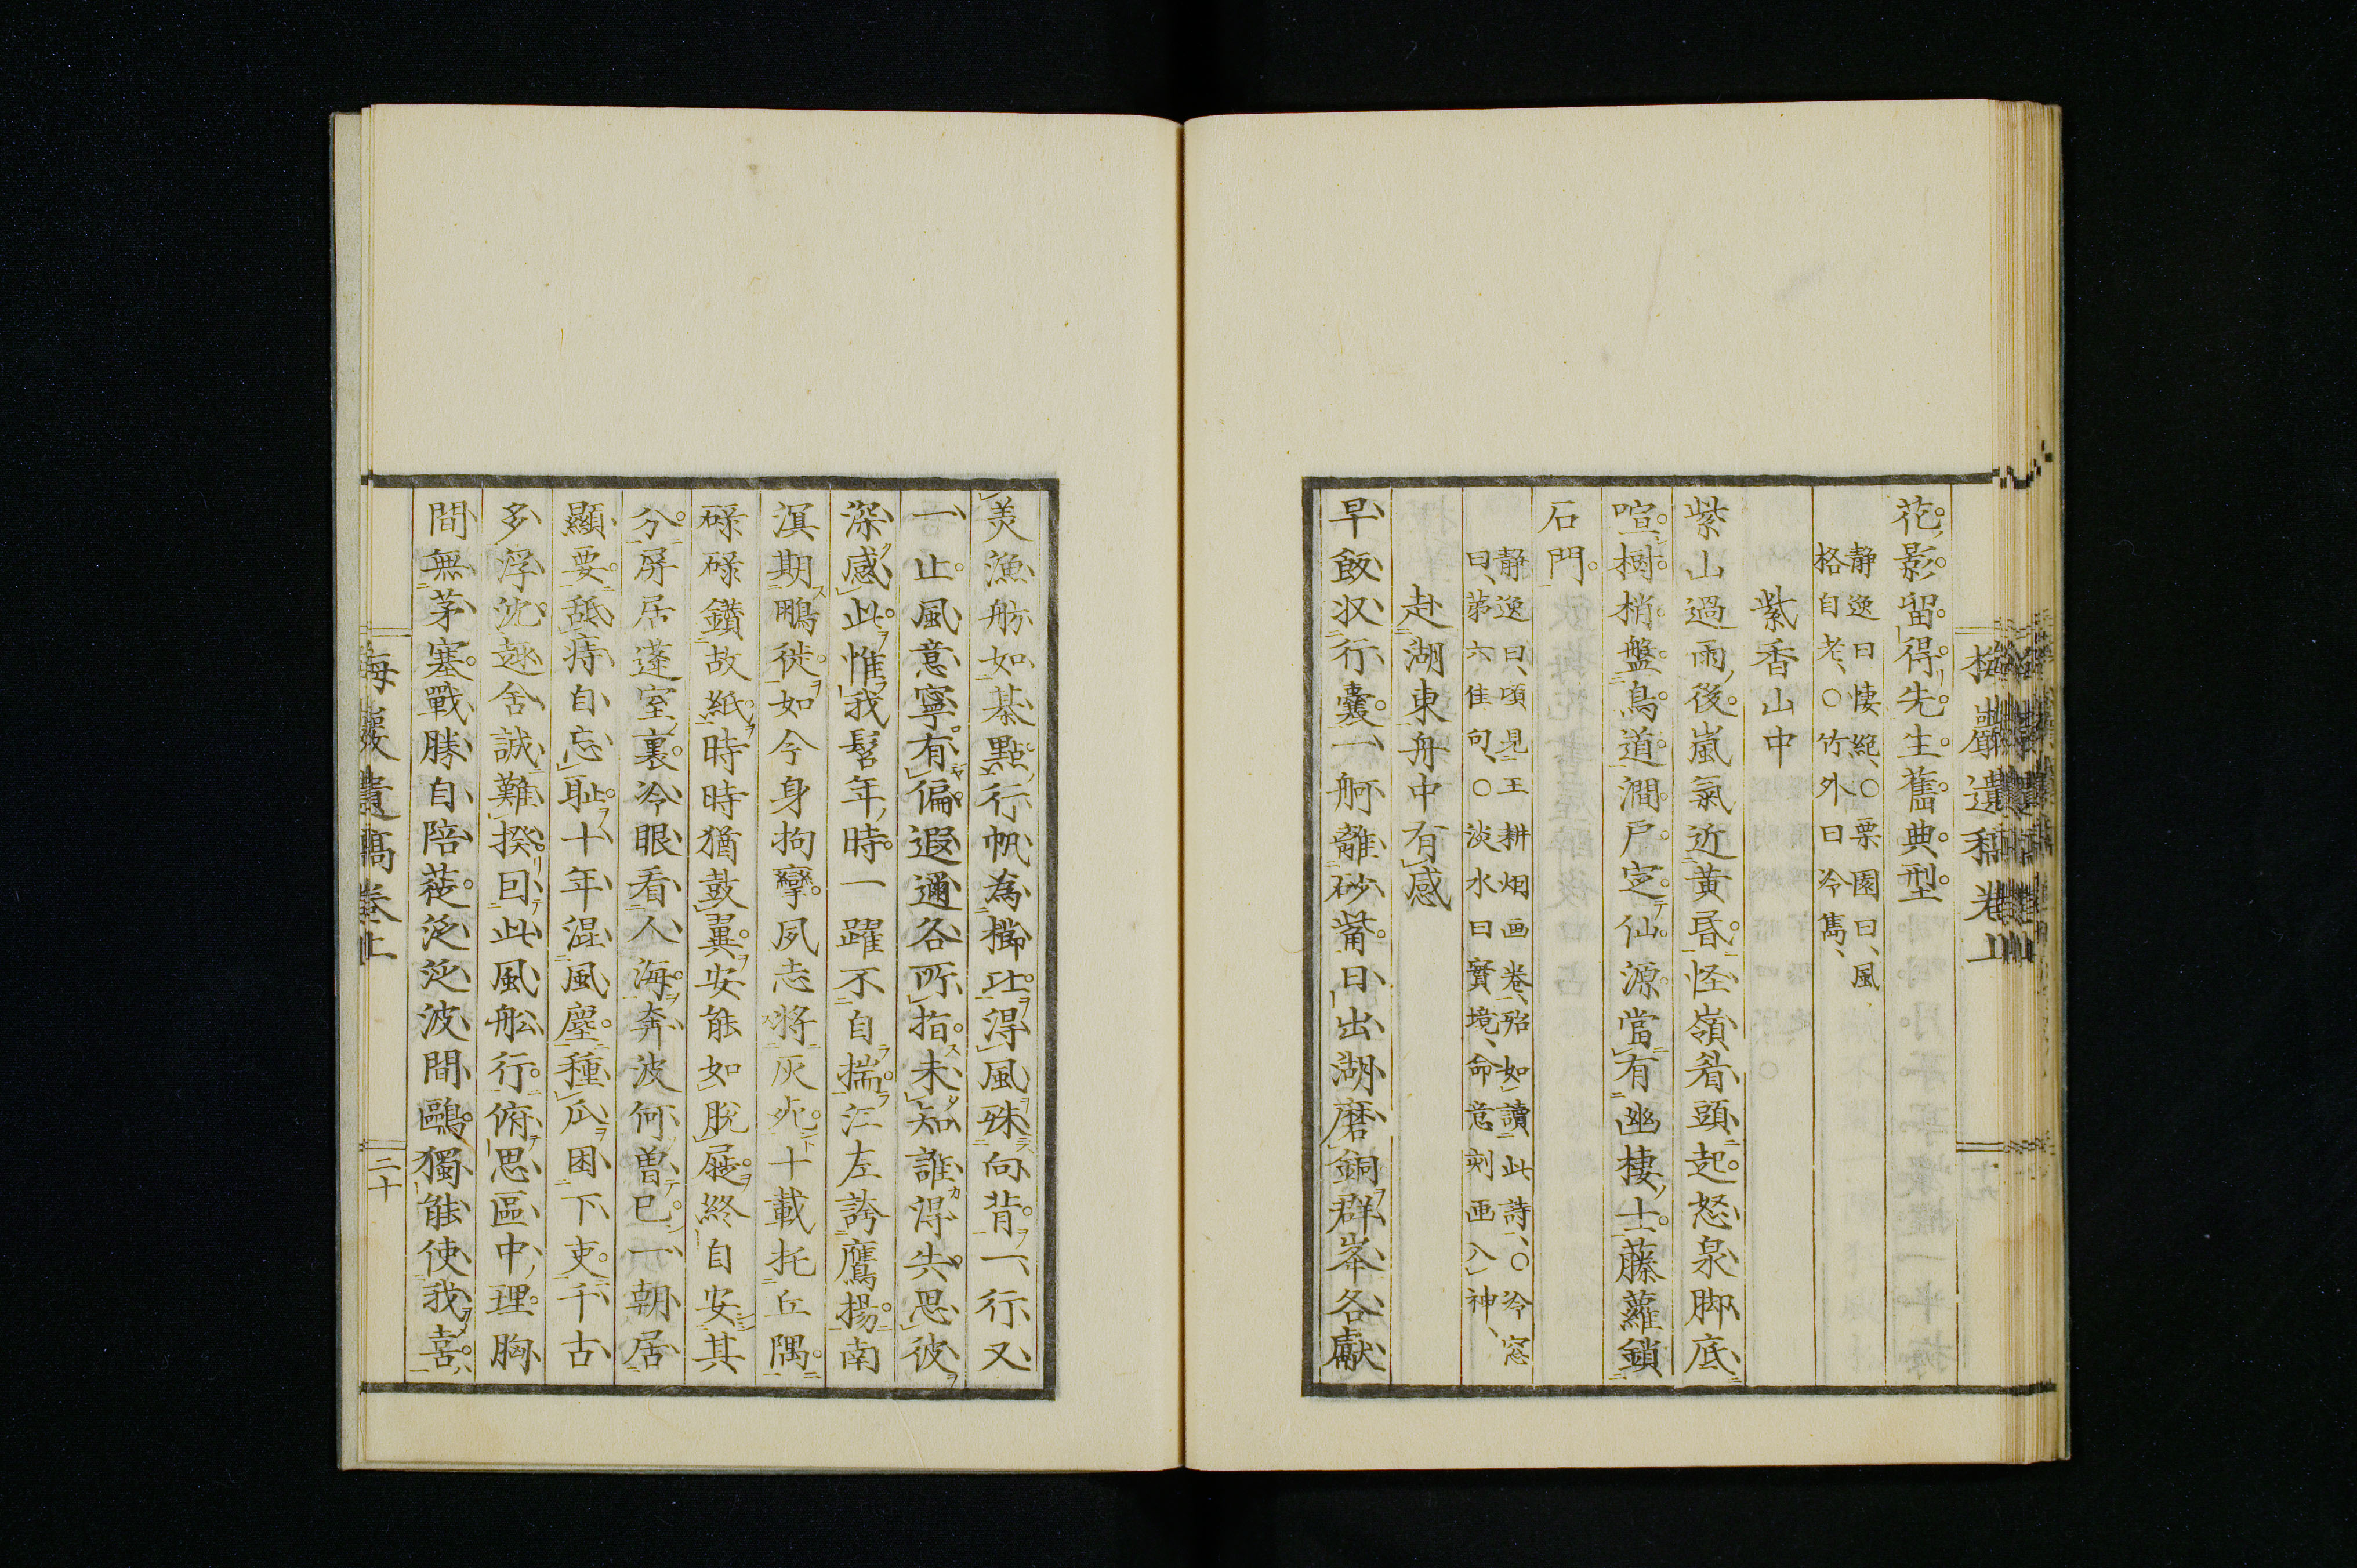 梅巖遺稿卷上
花影留得先生舊典型
静逸曰悽絶○栗園曰風
格自老○竹外曰冷雋
紫香山中
紫山過雨後嵐氣近黃昏怪嶺肴頭起怒泉脚底
喧樹梢盤鳥道澗戸定仙源當有幽棲士藤蘿鎖
石門
静逸曰頃見王耕烟画巻殆如讀此詩○冷窓
曰第六佳句○淡水曰實境命意刻画入神
赴湖東舟中有感
早飯收行囊一舸離砂觜日出湖磨銅群峯各獻
美漁舫如棊點行帆為櫛比得風殊向背一行又
一止風意寧有偏遐邇各所指未知誰得失思彼
深感此惟我髫年時一躍不自揣江左誇鷹揚南
溟期鵬徙如今身拘攣夙志将灰死十載托丘隅
碌碌鑚故紙時時猶鼓翼安能如脱屣終自安其
分屏居蓬室裏冷眼看人海奔波何曽已一朝居
顯要舐痔自忘恥十年混風塵種瓜困下吏千古
多浮沈趣舍誠難揆曰此風舩行俯思區中理胸
間無茅塞戰勝自陪蓰泛泛波間鷗獨能使我喜
梅巖遺稿卷上
二十